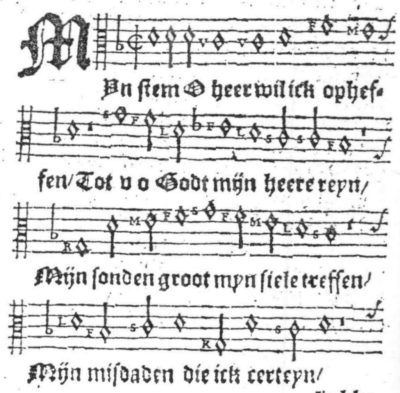 MYn stem O heer wil ick ophef-
fen/ Tot v o Godt mijn heere reyn/
Mijn sonden groot myn siele treffen/
Mijn misdaden die ick certeyn/